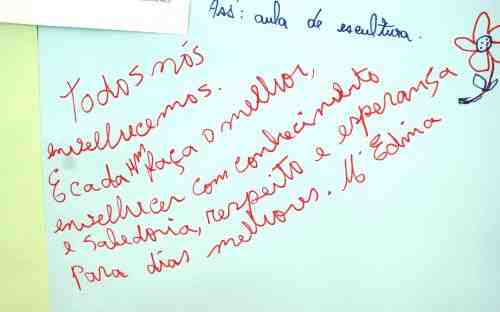 Ass: aula de escultura.
Todos nós
envelhecemos.
E cada um faça o melhor,
envelhecer com conhecimento
e sabedoria, respeito e esperança
para dias melhores. Mª Edina